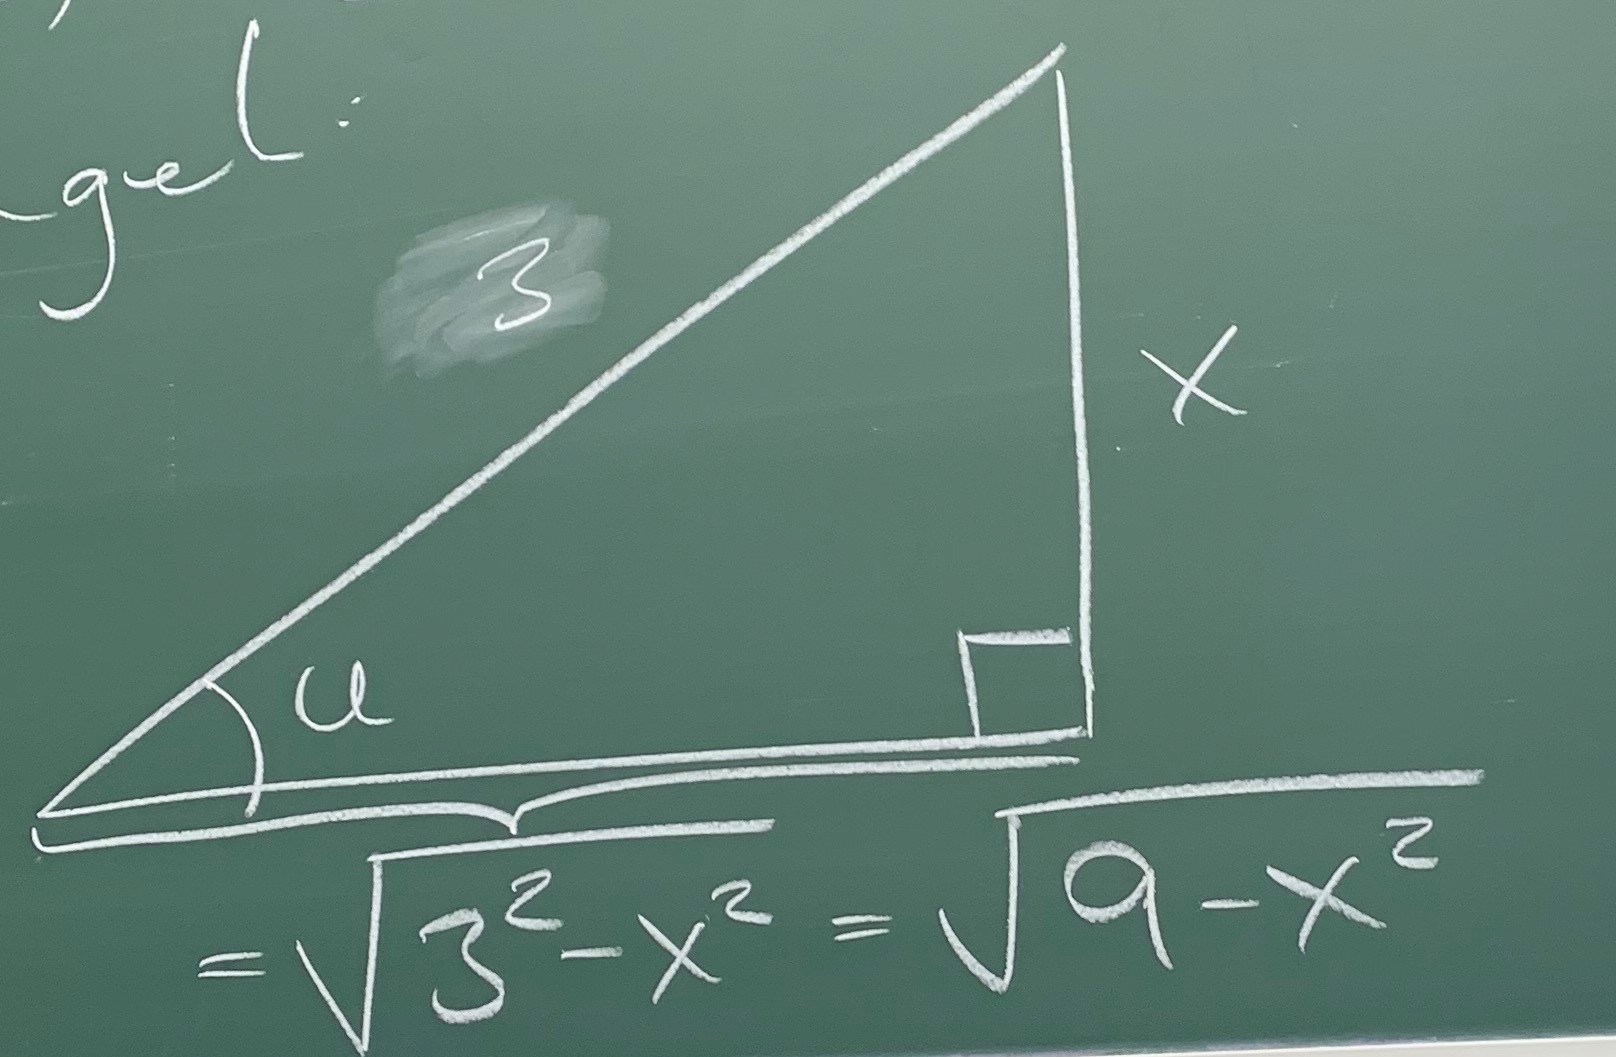 gel:
3
x
u
= √(3² - x²) = √(9 - x²)